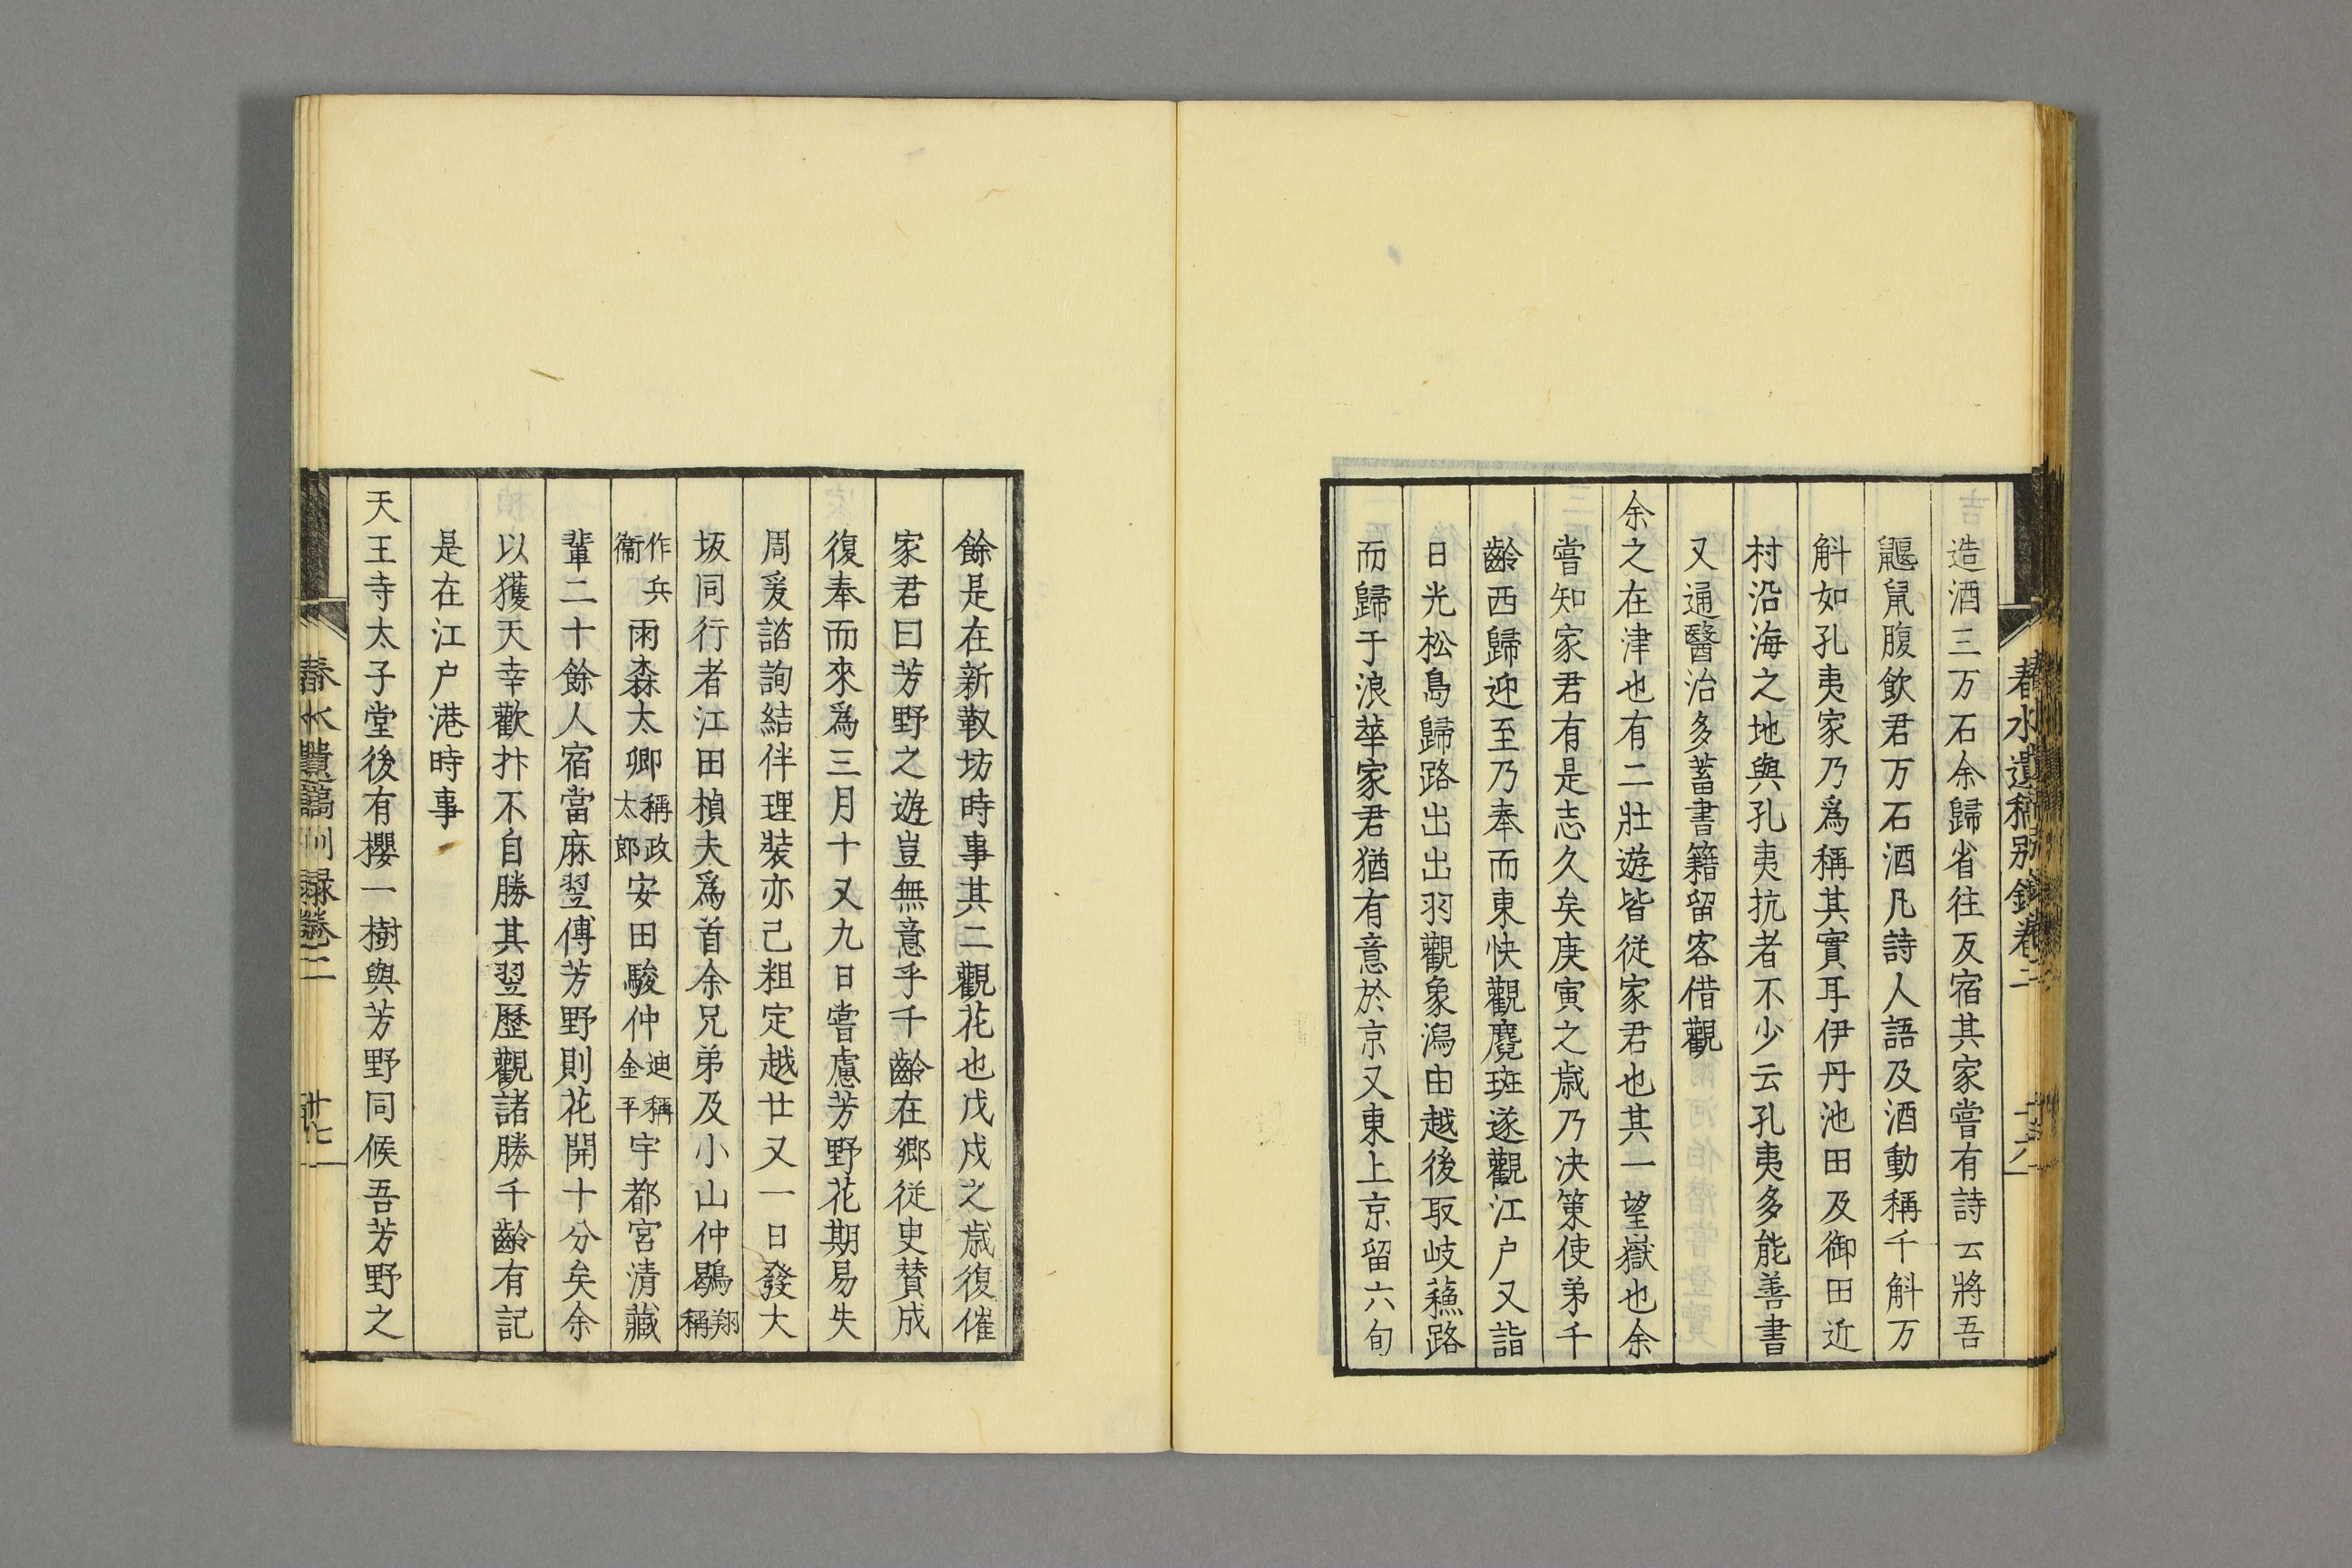 造酒三万石余歸省往反宿其家嘗有詩云將吾
鼴鼠腹飲君万石酒凡詩人語及酒動稱千斛万
斛如孔夷家乃爲稱其實耳伊丹池田及御田近
村沿海之地與孔夷抗者不少云孔夷多能善書
又通醫治多蓄書籍留客借觀
余之在津也有二壯遊皆從家君也其一望嶽也余
嘗知家君有是志久矣庚寅之歳乃决策使弟千
齡西歸迎至乃奉而東快觀麑斑遂觀江户又詣
日光松島歸路出出羽觀象潟由越後取岐蘓路
而歸于浪華家君猶有意於京又東上京留六旬
春水遺稿別録卷二
餘是在新靫坊時事其二觀花也戊戌之歳復催
家君曰芳野之遊豈無意乎千齡在郷從臾賛成
復奉而來爲三月十又九日嘗慮芳野花期易失
周爰諮詢結伴理裝亦已粗定越廿又一日發大
坂同行者江田楨夫爲首余兄弟及小山仲鶡翔稱
作兵衞雨森太卿稱政太郎安田駿仲迪稱金平宇都宮清藏
輩二十餘人宿當麻翌傅芳野則花開十分矣余
以獲天幸歡抃不自勝其翌歷觀諸勝千齡有記
是在江户港時事
天王寺太子堂後有櫻一樹與芳野同候吾芳野之
春水遺稿別録卷二
廿七